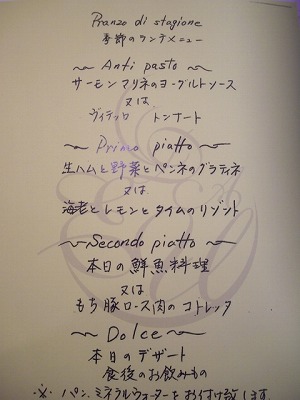 Pranzo di stagione
季節のランチメニュー
〜 Anti pasto 〜
サーモンマリネのヨーグルトソース
又は
ヴィテッロ トンナート
〜 Primo piatto 〜
生ハムと野菜とペンネのグラティネ
又は
海老とレモンとタイムのリゾット
〜 Secondo piatto 〜
本日の鮮魚料理
又は
もち豚ロース肉のコトレッタ
〜 Dolce 〜
本日のデザート
食後のお飲みもの
※ パン、ミネラルウォーターをお付け致します